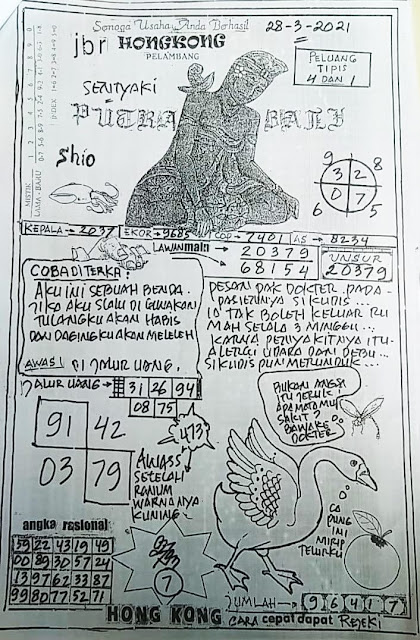 Semoga Usaha Anda Berhasil
28-3-2021
jbr HONGKONG
PELAMBANG
PELUANG
TIPIS
4 DAN 1
SENTYAKI
PUTRA BATI
Shio
MISTIK
LAMA - BARU
9 8
3 2
0 7
6 5
KEPALA → 2037 EKOR → 9685 COP → 7401 AS → 8234
LAWANmain
20379
68154
UNSUR
20379
COBA DI TERKA!
AKU INI SEBUAH BENDA.
JIKA AKU SLALU DI GUNAKAN
TULANGKU AKAN HABIS
DAN DAGINGKU AKAN MELELEH
PESAN PAK DOKTER PADA
PASIENNYA SI KUDIS...
IA TAK BOLEH KELUAR RU
MAH SELAMA 3 MINGGU...
KARNA PENYAKITNYA ITU
ALERGI UDARA DAN DEBU...
SI KUDIS PUN MERUNDUK...
AWAS! DI JALUR UANG.
JALUR UANG → 31 26 94
08 75
473
91 42
03 79
AWASS
SETELAH
RANUM
WARNANYA
KUNING
BUKAN ANGSA
ITU JERUK!
APA MATAMU
SAKIT?
BAWA KE
DOKTER
CA
PUNG
INI
MIRIP
TELURKU
angka rasional
59 22 43 19 49
00 89 30 57 24
13 97 62 33 87
99 80 77 52 71
7
JUMLAH → 9 6 4 1 7
HONG KONG CARA cepat dapat REJEKI